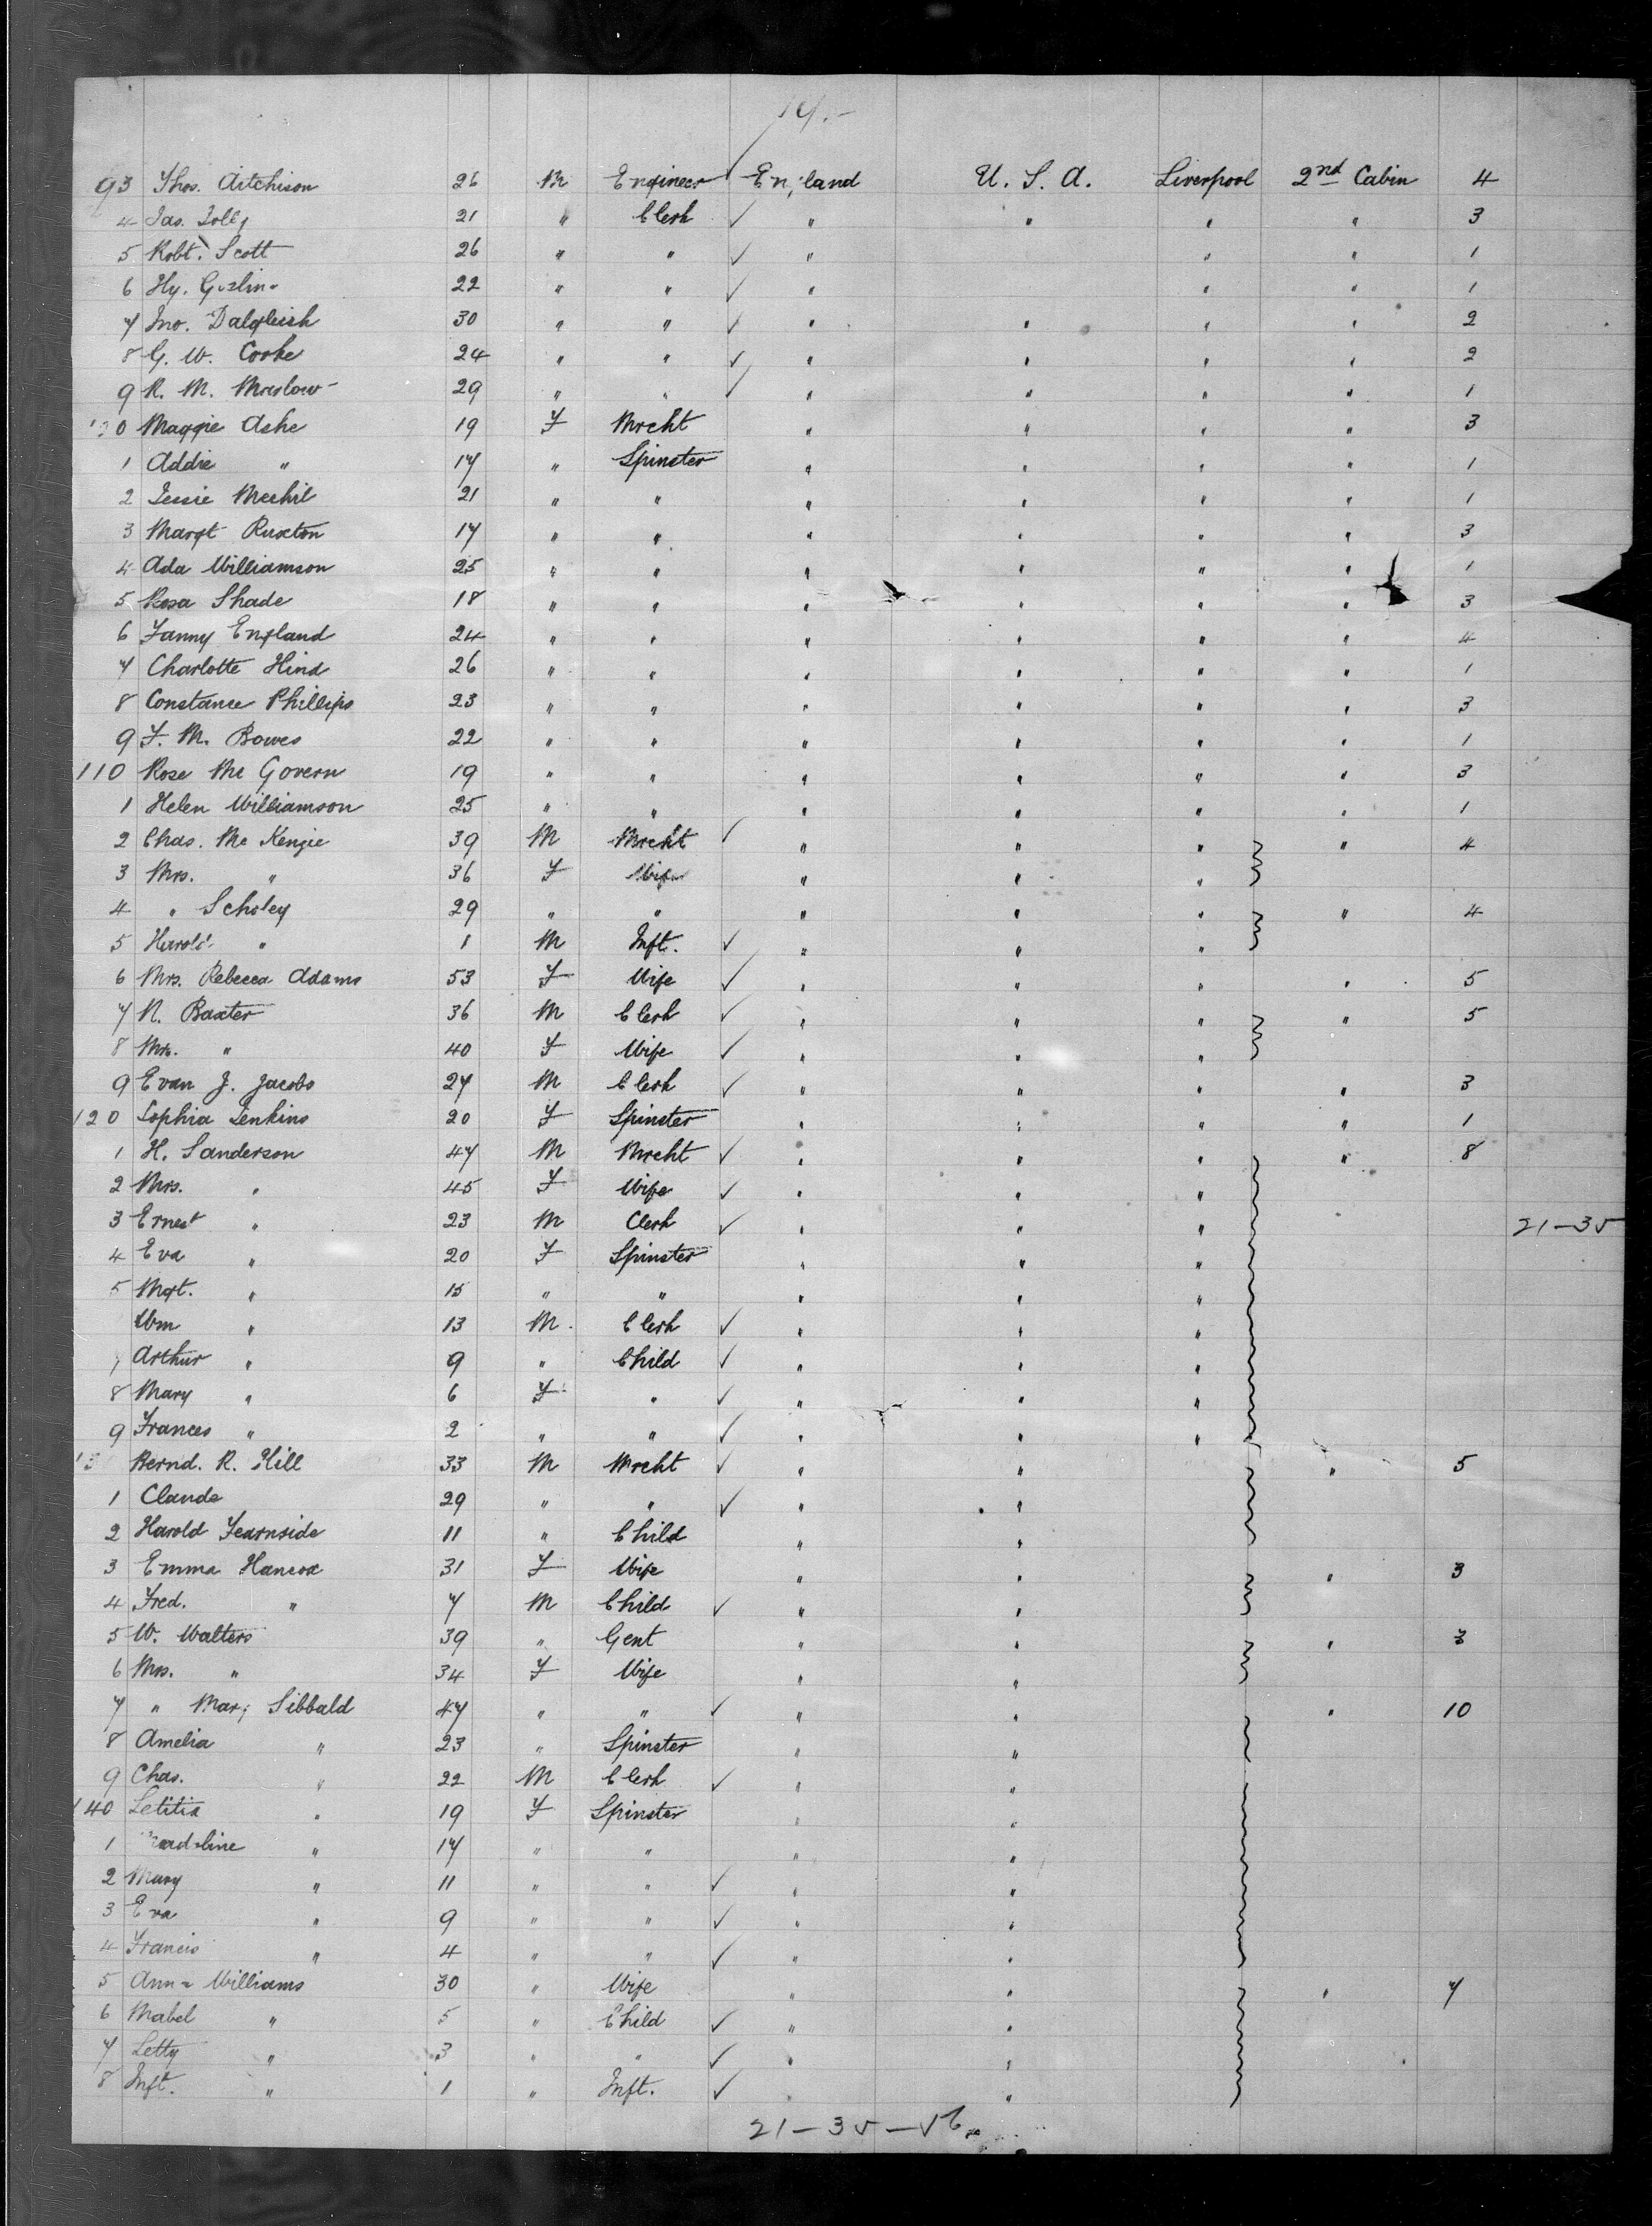 14.-
93 Thos. Aitchison 26 M Engineer England U. S. A. Liverpool 2nd Cabin 4
4 Jas. Jolly 21 " Clerk ✓ " " " " 3
5 Robt. Scott 26 " " ✓ " " " 1
6 Hy. 22 " " ✓ " " " 1
7 Jno. Dalgleish 30 " " ✓ " " " " 2
8 G. W. Cooke 24 " " ✓ " " " " 2
9 R. M. Maslow 29 " " ✓ " " " " 1
100 Maggie Ashe 19 F Mrcht " " " " 3
1 Addie " 17 " Spinster " " " " 1
2 Jessie 21 " " " " " " 1
3 Margt Ruxton 17 " " " " " " 3
4 Ada Williamson 25 " " " " " " 1
5 Rosa Shade 18 " " " " " " 3
6 Fanny England 24 " " " " " " 4
7 Charlotte Hind 26 " " " " " " 1
8 Constance Phillips 23 " " " " " " 3
9 F. M. Bowes 22 " " " " " " 1
110 Rose Mc Govern 19 " " " " " " 3
1 Helen Williamson 25 " " " " " " 1
2 Chas. Mc Kenzie 39 M Mrcht ✓ " " " " 4
3 Mrs. " 36 F Wife " " "
4 " Scholey 29 " " " " " " 4
5 Harold " 1 M Inft. ✓ " " "
6 Mrs. Rebecca Adams 53 F Wife ✓ " " " " 5
7 N. Baxter 36 M Clerk ✓ " " " " 5
8 Mrs. " 40 F Wife ✓ " " "
9 Evan J. Jacobs 27 M Clerk ✓ " " " " 3
120 Sophia Jenkins 20 F Spinster " " " " 1
1 H. Sanderson 47 M Mrcht ✓ " " " " 8
2 Mrs. " 45 F Wife ✓ " " "
3 Ernest " 23 M Clerk ✓ " " " 21-35
4 Eva " 20 F Spinster " " "
5 Mgt. " 15 " " " " "
Wm " 13 M Clerk ✓ " " "
7 Arthur " 9 " Child ✓ " " "
8 Mary " 6 F " ✓ " " "
9 Frances " 2 " " ✓ " " "
13 Bernd. R. Hill 33 M Mrcht ✓ " " " 5
1 Claude 29 " " ✓ " "
2 Harold Fearnside 11 " Child " "
3 Emma Hancox 31 F Wife " " " 3
4 Fred. " 7 M Child ✓ " "
5 W. Walters 39 " Gent " " " 3
6 Mrs. " 34 F Wife " "
7 " Mary Sibbald 47 " " ✓ " " " 10
8 Amelia " 23 " Spinster " "
9 Chas. " 22 M Clerk ✓ " "
140 Letitia " 19 F Spinster " "
1 Madeline " 17 " " " "
2 Mary " 11 " " ✓ " "
3 Eva " 9 " " ✓ " "
4 Francis " 4 " " ✓ " "
5 Anna Williams 30 " Wife " " " 7
6 Mabel " 5 " Child ✓ " "
7 Letty " 3 " " ✓ " "
8 Inft. " 1 " Inft. ✓ "
21-35-56